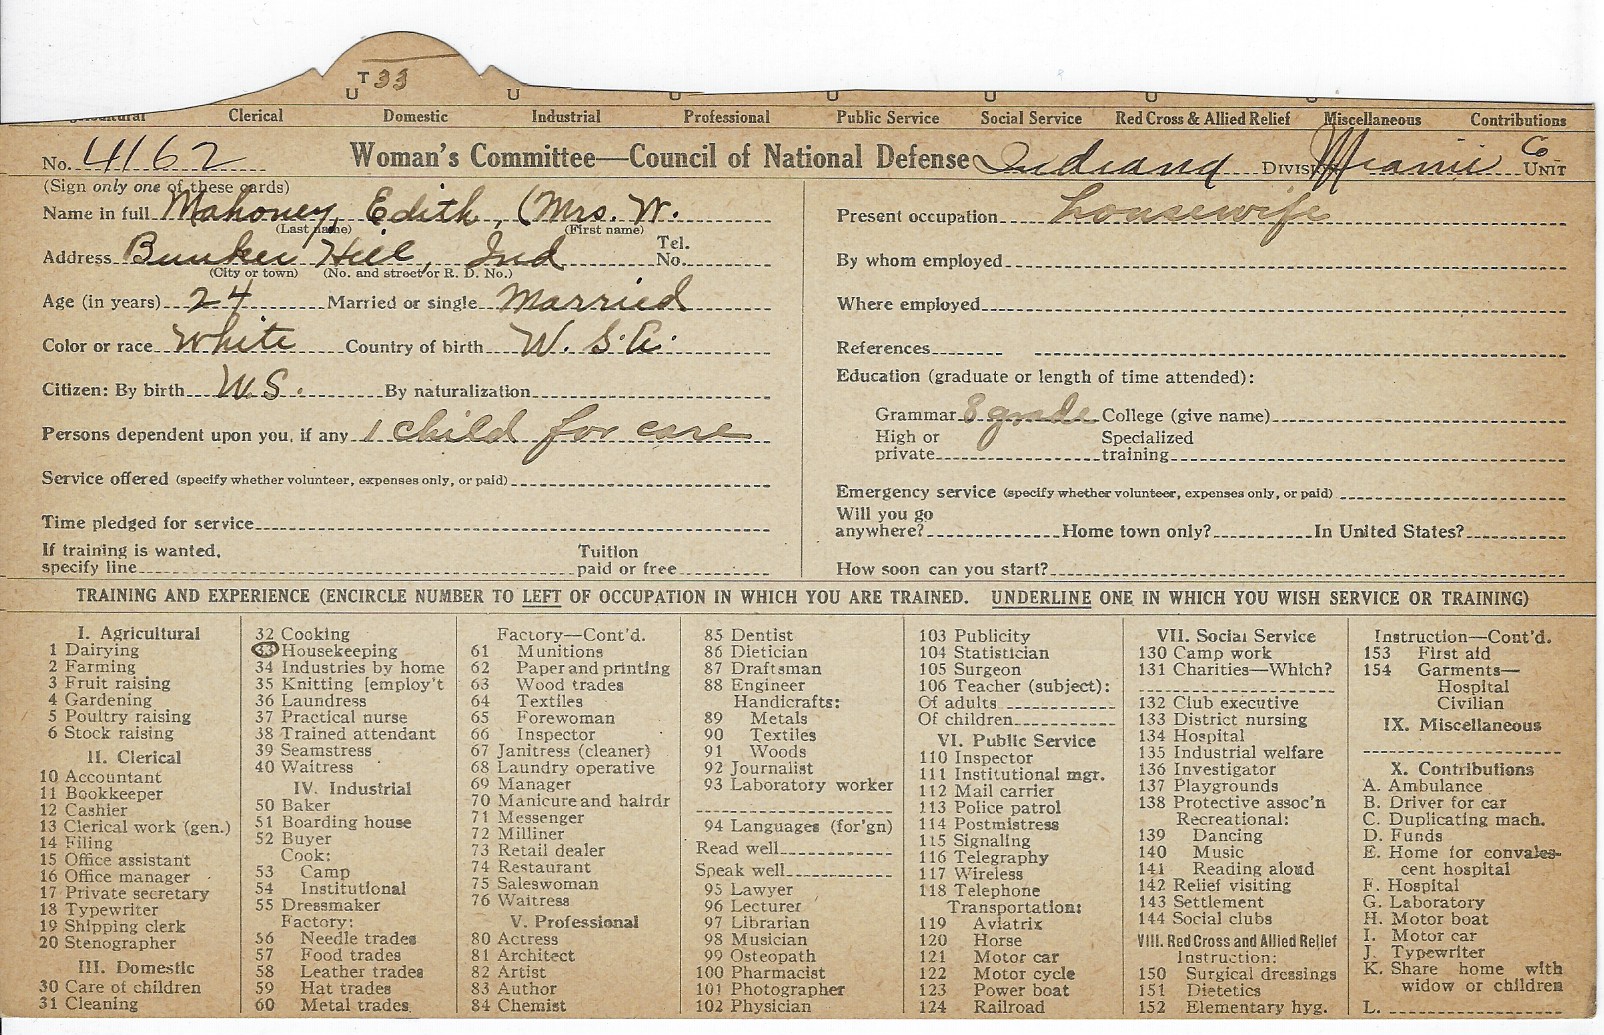 T 33
U U U U U U
Clerical Domestic Industrial Professional Public Service Social Service Red Cross & Allied Relief Miscellaneous Contributions
No. 4162 Woman's Committee—Council of National Defense Indiana Division Miami 6 Unit
(Sign only one of these cards)
Name in full Mahoney, Edith, (Mrs. W.
(Last name) (First name)
Address Bunker Hill, Ind Tel. No.
(City or town) (No. and street or R. D. No.)
Age (in years) 24 Married or single Married
Color or race White Country of birth U. S. A.
Citizen: By birth U.S. By naturalization
Persons dependent upon you, if any 1 child for care
Service offered (specify whether volunteer, expenses only, or paid)
Time pledged for service
If training is wanted, specify line Tuition paid or free
Present occupation housewife
By whom employed
Where employed
References
Education (graduate or length of time attended):
Grammar 8 grade College (give name)
High or private Specialized training
Emergency service (specify whether volunteer, expenses only, or paid)
Will you go anywhere? Home town only? In United States?
How soon can you start?
TRAINING AND EXPERIENCE (ENCIRCLE NUMBER TO LEFT OF OCCUPATION IN WHICH YOU ARE TRAINED. UNDERLINE ONE IN WHICH YOU WISH SERVICE OR TRAINING)
I. Agricultural
1 Dairying
2 Farming
3 Fruit raising
4 Gardening
5 Poultry raising
6 Stock raising
II. Clerical
10 Accountant
11 Bookkeeper
12 Cashier
13 Clerical work (gen.)
14 Filing
15 Office assistant
16 Office manager
17 Private secretary
18 Typewriter
19 Shipping clerk
20 Stenographer
III. Domestic
30 Care of children
31 Cleaning
32 Cooking
33 Housekeeping
34 Industries by home
35 Knitting [employ't
36 Laundress
37 Practical nurse
38 Trained attendant
39 Seamstress
40 Waitress
IV. Industrial
50 Baker
51 Boarding house
52 Buyer
Cook:
53 Camp
54 Institutional
55 Dressmaker
Factory:
56 Needle trades
57 Food trades
58 Leather trades
59 Hat trades
60 Metal trades
Factory—Cont'd.
61 Munitions
62 Paper and printing
63 Wood trades
64 Textiles
65 Forewoman
66 Inspector
67 Janitress (cleaner)
68 Laundry operative
69 Manager
70 Manicure and hairdr
71 Messenger
72 Milliner
73 Retail dealer
74 Restaurant
75 Saleswoman
76 Waitress
V. Professional
80 Actress
81 Architect
82 Artist
83 Author
84 Chemist
85 Dentist
86 Dietician
87 Draftsman
88 Engineer
Handicrafts:
89 Metals
90 Textiles
91 Woods
92 Journalist
93 Laboratory worker
94 Languages (for'gn)
Read well
Speak well
95 Lawyer
96 Lecturer
97 Librarian
98 Musician
99 Osteopath
100 Pharmacist
101 Photographer
102 Physician
103 Publicity
104 Statistician
105 Surgeon
106 Teacher (subject):
Of adults
Of children
VI. Public Service
110 Inspector
111 Institutional mgr.
112 Mail carrier
113 Police patrol
114 Postmistress
115 Signaling
116 Telegraphy
117 Wireless
118 Telephone
Transportation:
119 Aviatrix
120 Horse
121 Motor car
122 Motor cycle
123 Power boat
124 Railroad
VII. Social Service
130 Camp work
131 Charities—Which?
132 Club executive
133 District nursing
134 Hospital
135 Industrial welfare
136 Investigator
137 Playgrounds
138 Protective assoc'n
Recreational:
139 Dancing
140 Music
141 Reading aloud
142 Relief visiting
143 Settlement
144 Social clubs
VIII. Red Cross and Allied Relief
Instruction:
150 Surgical dressings
151 Dietetics
152 Elementary hyg.
Instruction—Cont'd.
153 First aid
154 Garments—
Hospital
Civilian
IX. Miscellaneous
X. Contributions
A. Ambulance
B. Driver for car
C. Duplicating mach.
D. Funds
E. Home for convales-
cent hospital
F. Hospital
G. Laboratory
H. Motor boat
I. Motor car
J. Typewriter
K. Share home with
widow or children
L.